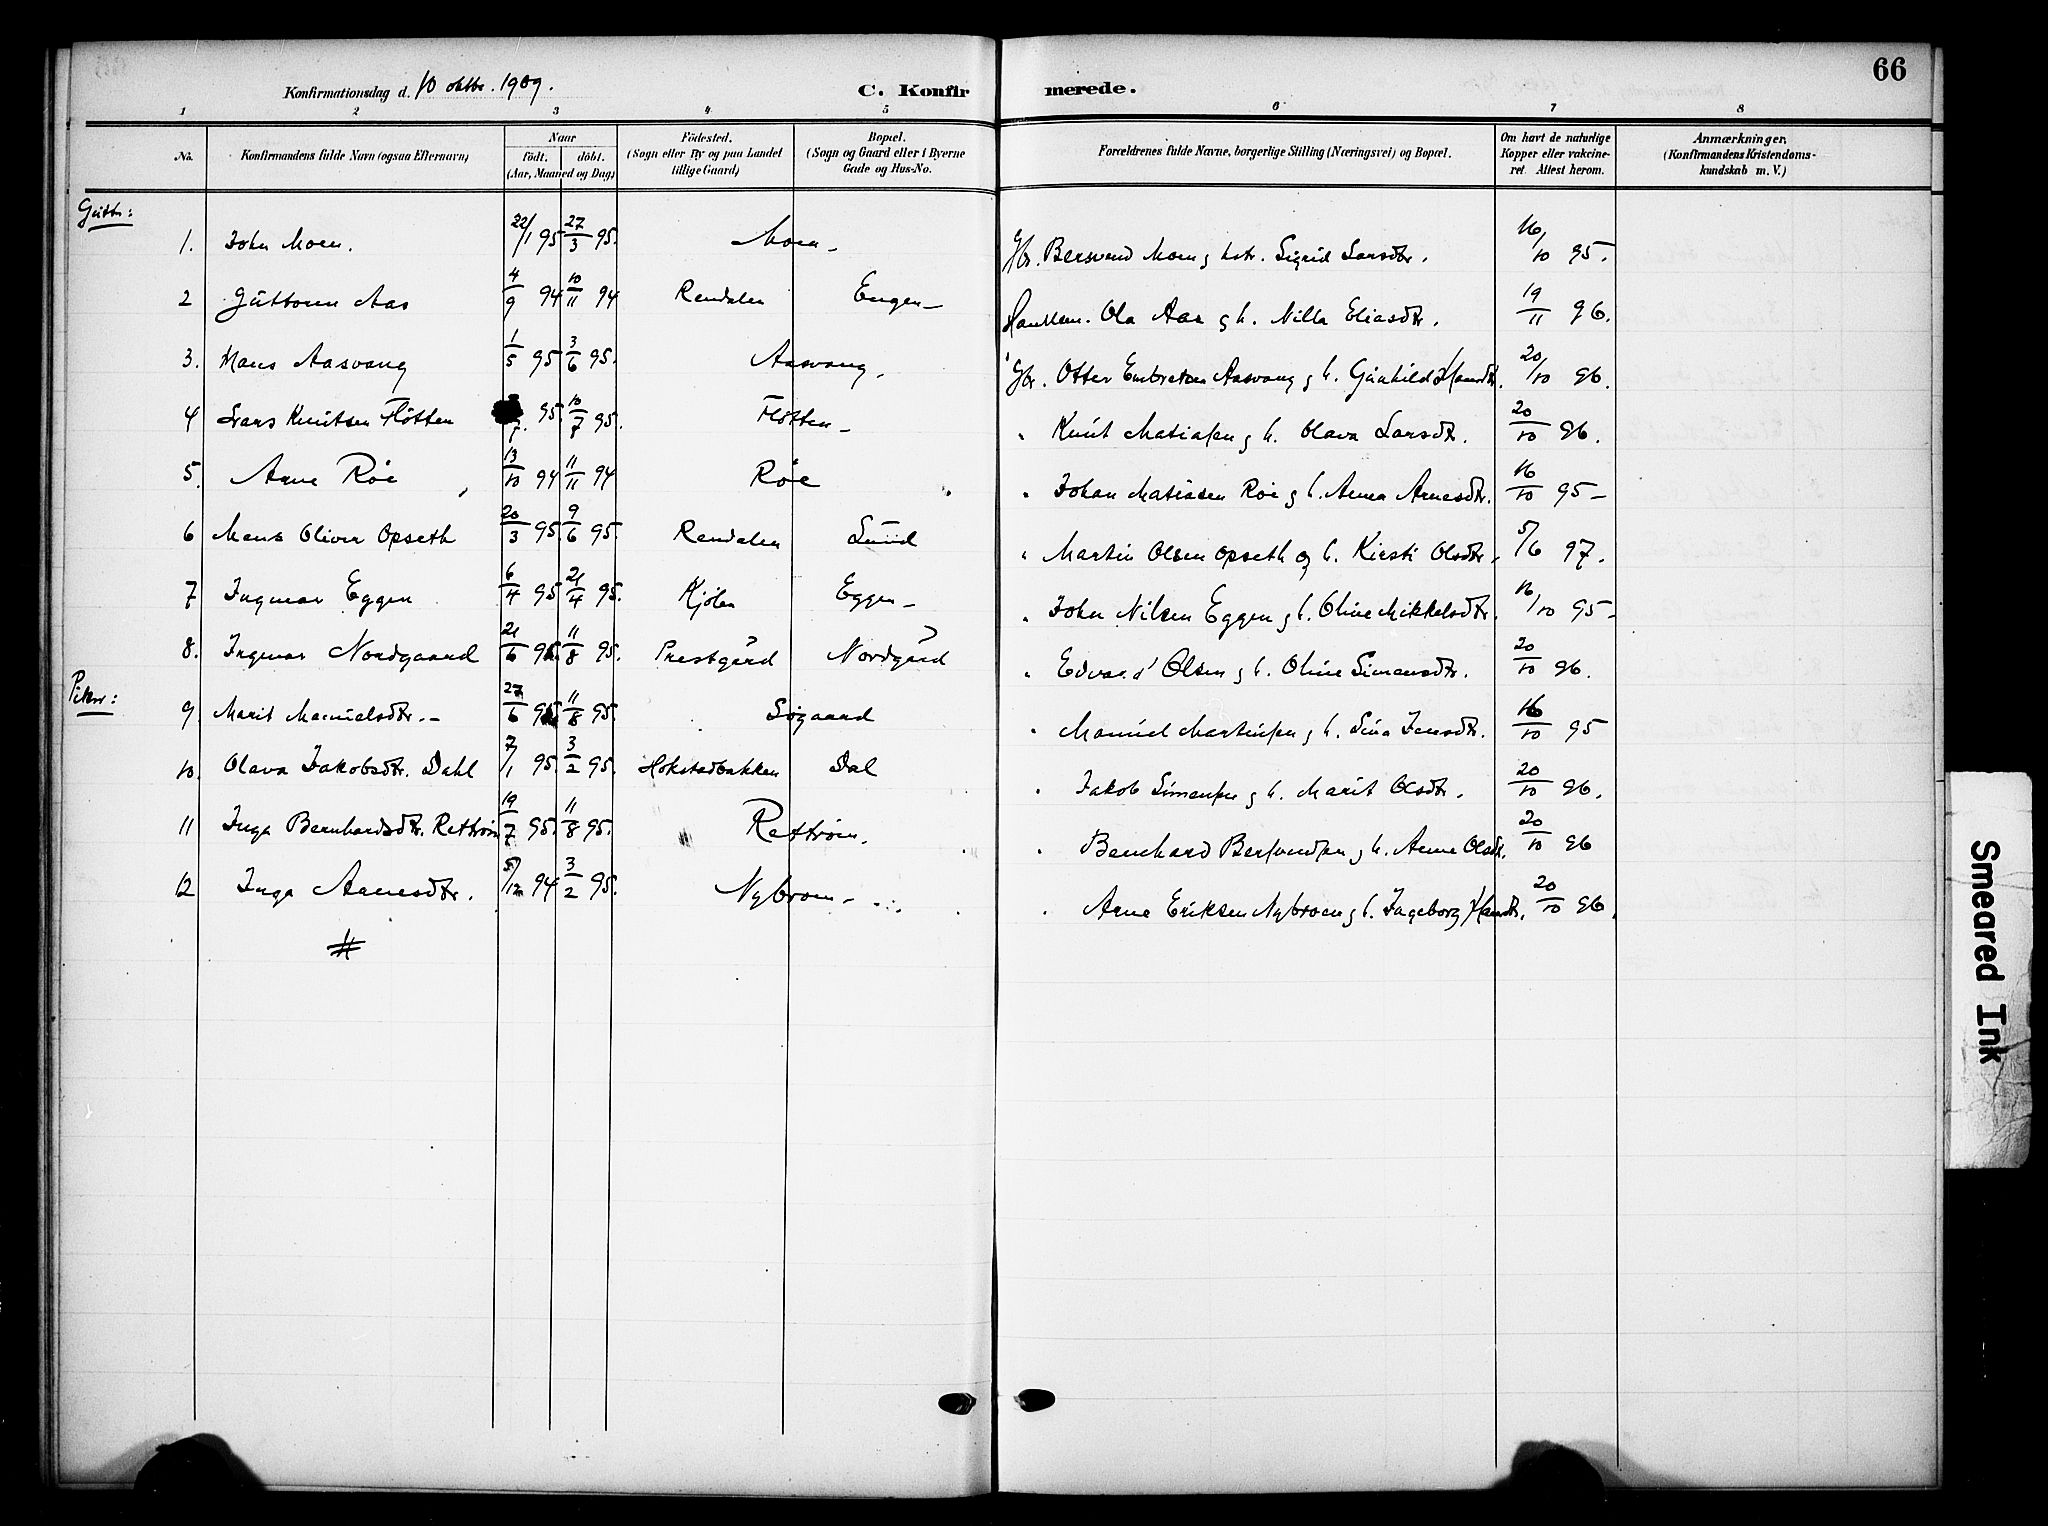 66
Konfirmationsdag d. 10 oktbr. 1909.
C. Konfirmerede.
1 2 3 4 5 6 7 8
No. Konfirmandens fulde Navn (ogsaa Efternavn) Naar födt. döbt. (Aar, Maaned og Dag) Födested. (Sogn eller By og paa Landet tillige Gaard) Bopæl. (Sogn og Gaard eller i Byerne Gade og Hus-No. Forældrenes fulde Navne, borgerlige Stilling (Næringsvei) og Bopæl. Om havt de naturlige Kopper eller vakcineret. Attest herom. Anmærkninger. (Konfirmandens Kristendomskundskab m. V.)
Gutter:
1. John Moen. 22/1 95 27/3 95. Moen Gbr. Bersvend Moen g hstr. Sigrid Larsdtr. 16/10 95.
2 Guttorm Aas 4/9 94 10/11 94 Rendalen Engen Ola Aas g h. Nilla Eliasdtr. 19/11 96.
3. Hans Aasvang 1/5 95 3/6 95. Aasvang. Gbr. Otter Embretsen Aasvang g h. Gunhild Hansdtr. 20/10 96.
4 Lars Knutsen Fløtten 7. 95. 10/7 95. Fløtten " Knut Matiasen g h. Olava Larsdtr. 20/10 96.
5. Arne Røe 13/10 94 11/11 94 Røe " Johan Matiasen Røe g h. Anna Arnesdtr. 16/10 95
6 Hans Oliver Opseth 20/3 95. 9/6 95. Rendalen Lund " Martin Olsen Opseth og h. Kirsti Olsdtr. 5/6 97.
7 Ingmar Eggen 6/4 95 21/4 95. Kjølen Eggen " John Nilsen Eggen g h. Oline Mikkelsdtr. 16/10 95
8. Ingmar Nordgaard 21/6 95. 11/8 95. Prestgård Nordgård " Edvard Olsen g h. Oline Simensdtr. 20/10 96.
Piker:
9. Marit Manuelsdtr. 27/6 95 11/8 95. Søgaard " Manuel Martinsen g h. Lina Jensdtr. 16/10 95
10. Olava Jakobsdtr. Dahl 7/1 95. 3/2 95. Hokstadbakken Dal " Jakob Simensen g h. Marit Olsdtr. 20/10 96.
11 Inga Bernhardsdtr. Rettrøen 19/7 95. 11/8 95. Rettrøen. " Bernhard Bersvendsen g h. Anne Olsdtr. 20/10 96
12 Inga Arnesdtr. 5/12 94 3/2 95. Nybroen " Arne Eriksen Nybroen g h. Ingeborg Hansdtr. 20/10 96.
Smeared Ink